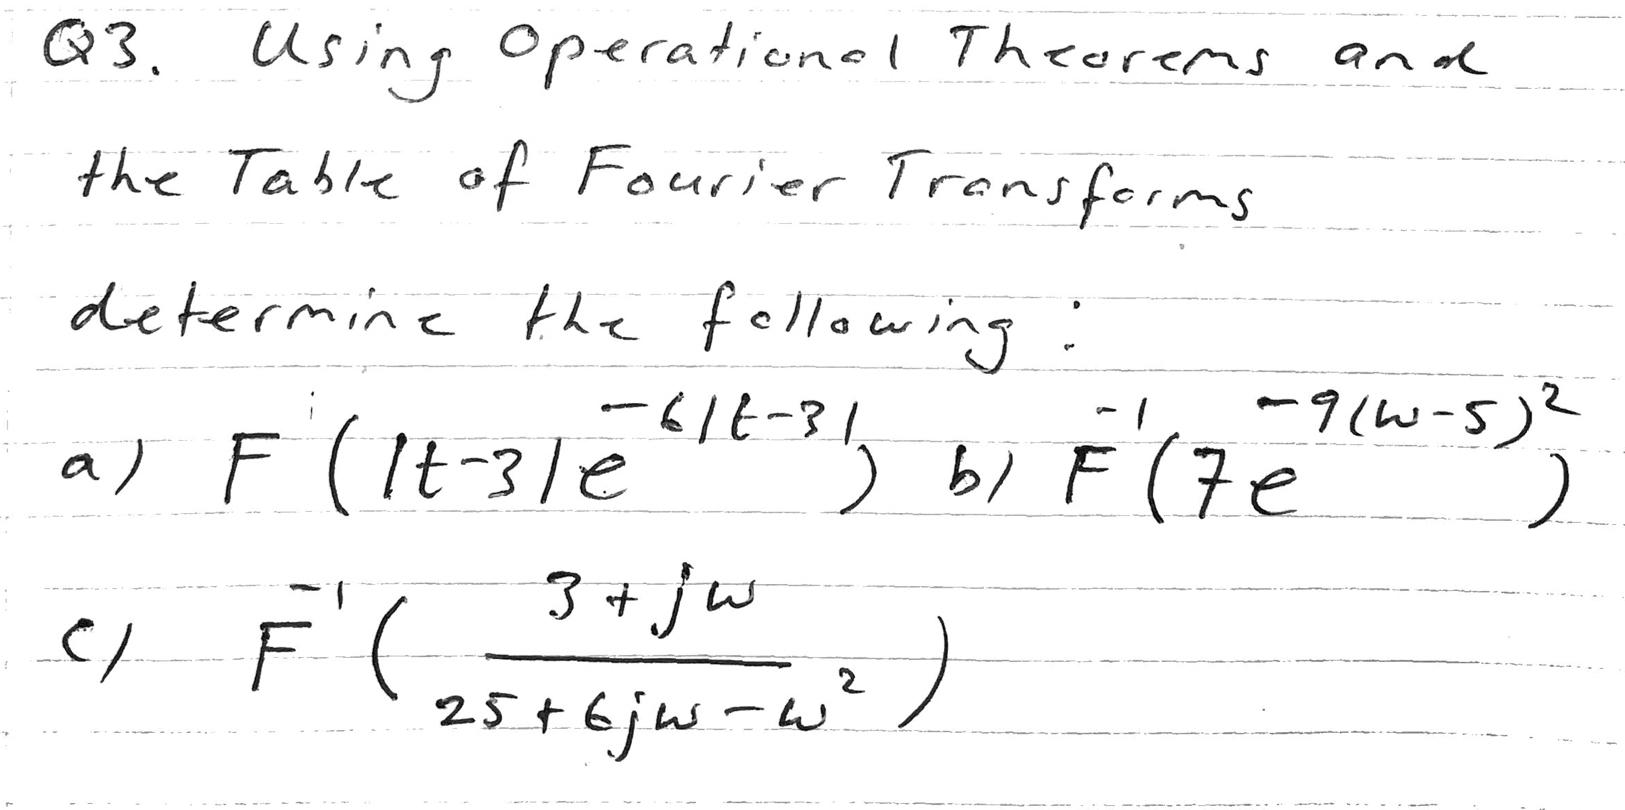 Q3. Using Operational Theorems and
the Table of Fourier Transforms
determine the following:
a) F(|t-3|e^{-6|t-3|}) b) F^{-1}(7e^{-9(w-5)^2})
c) F^{-1}((3+jw)/(25+6jw-w^2))